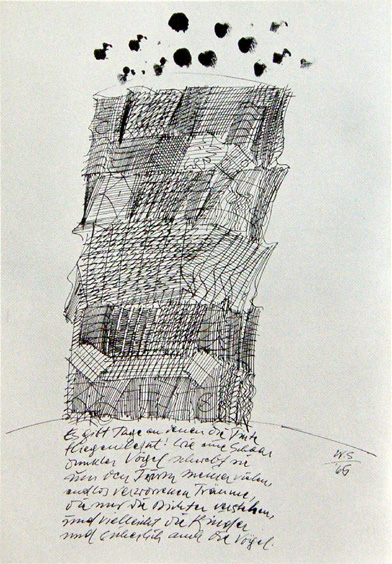 Es gibt Tage an denen die Tinte
fliegen lernt! Wie eine Schar
dunkler Vögel schwebt sie
über den Turm meiner vielen
endlos verworrenen Träume,
die nur die Dichter verstehen,
und vielleicht die Kinder
und sicherlich auch die Vögel.
WS
65